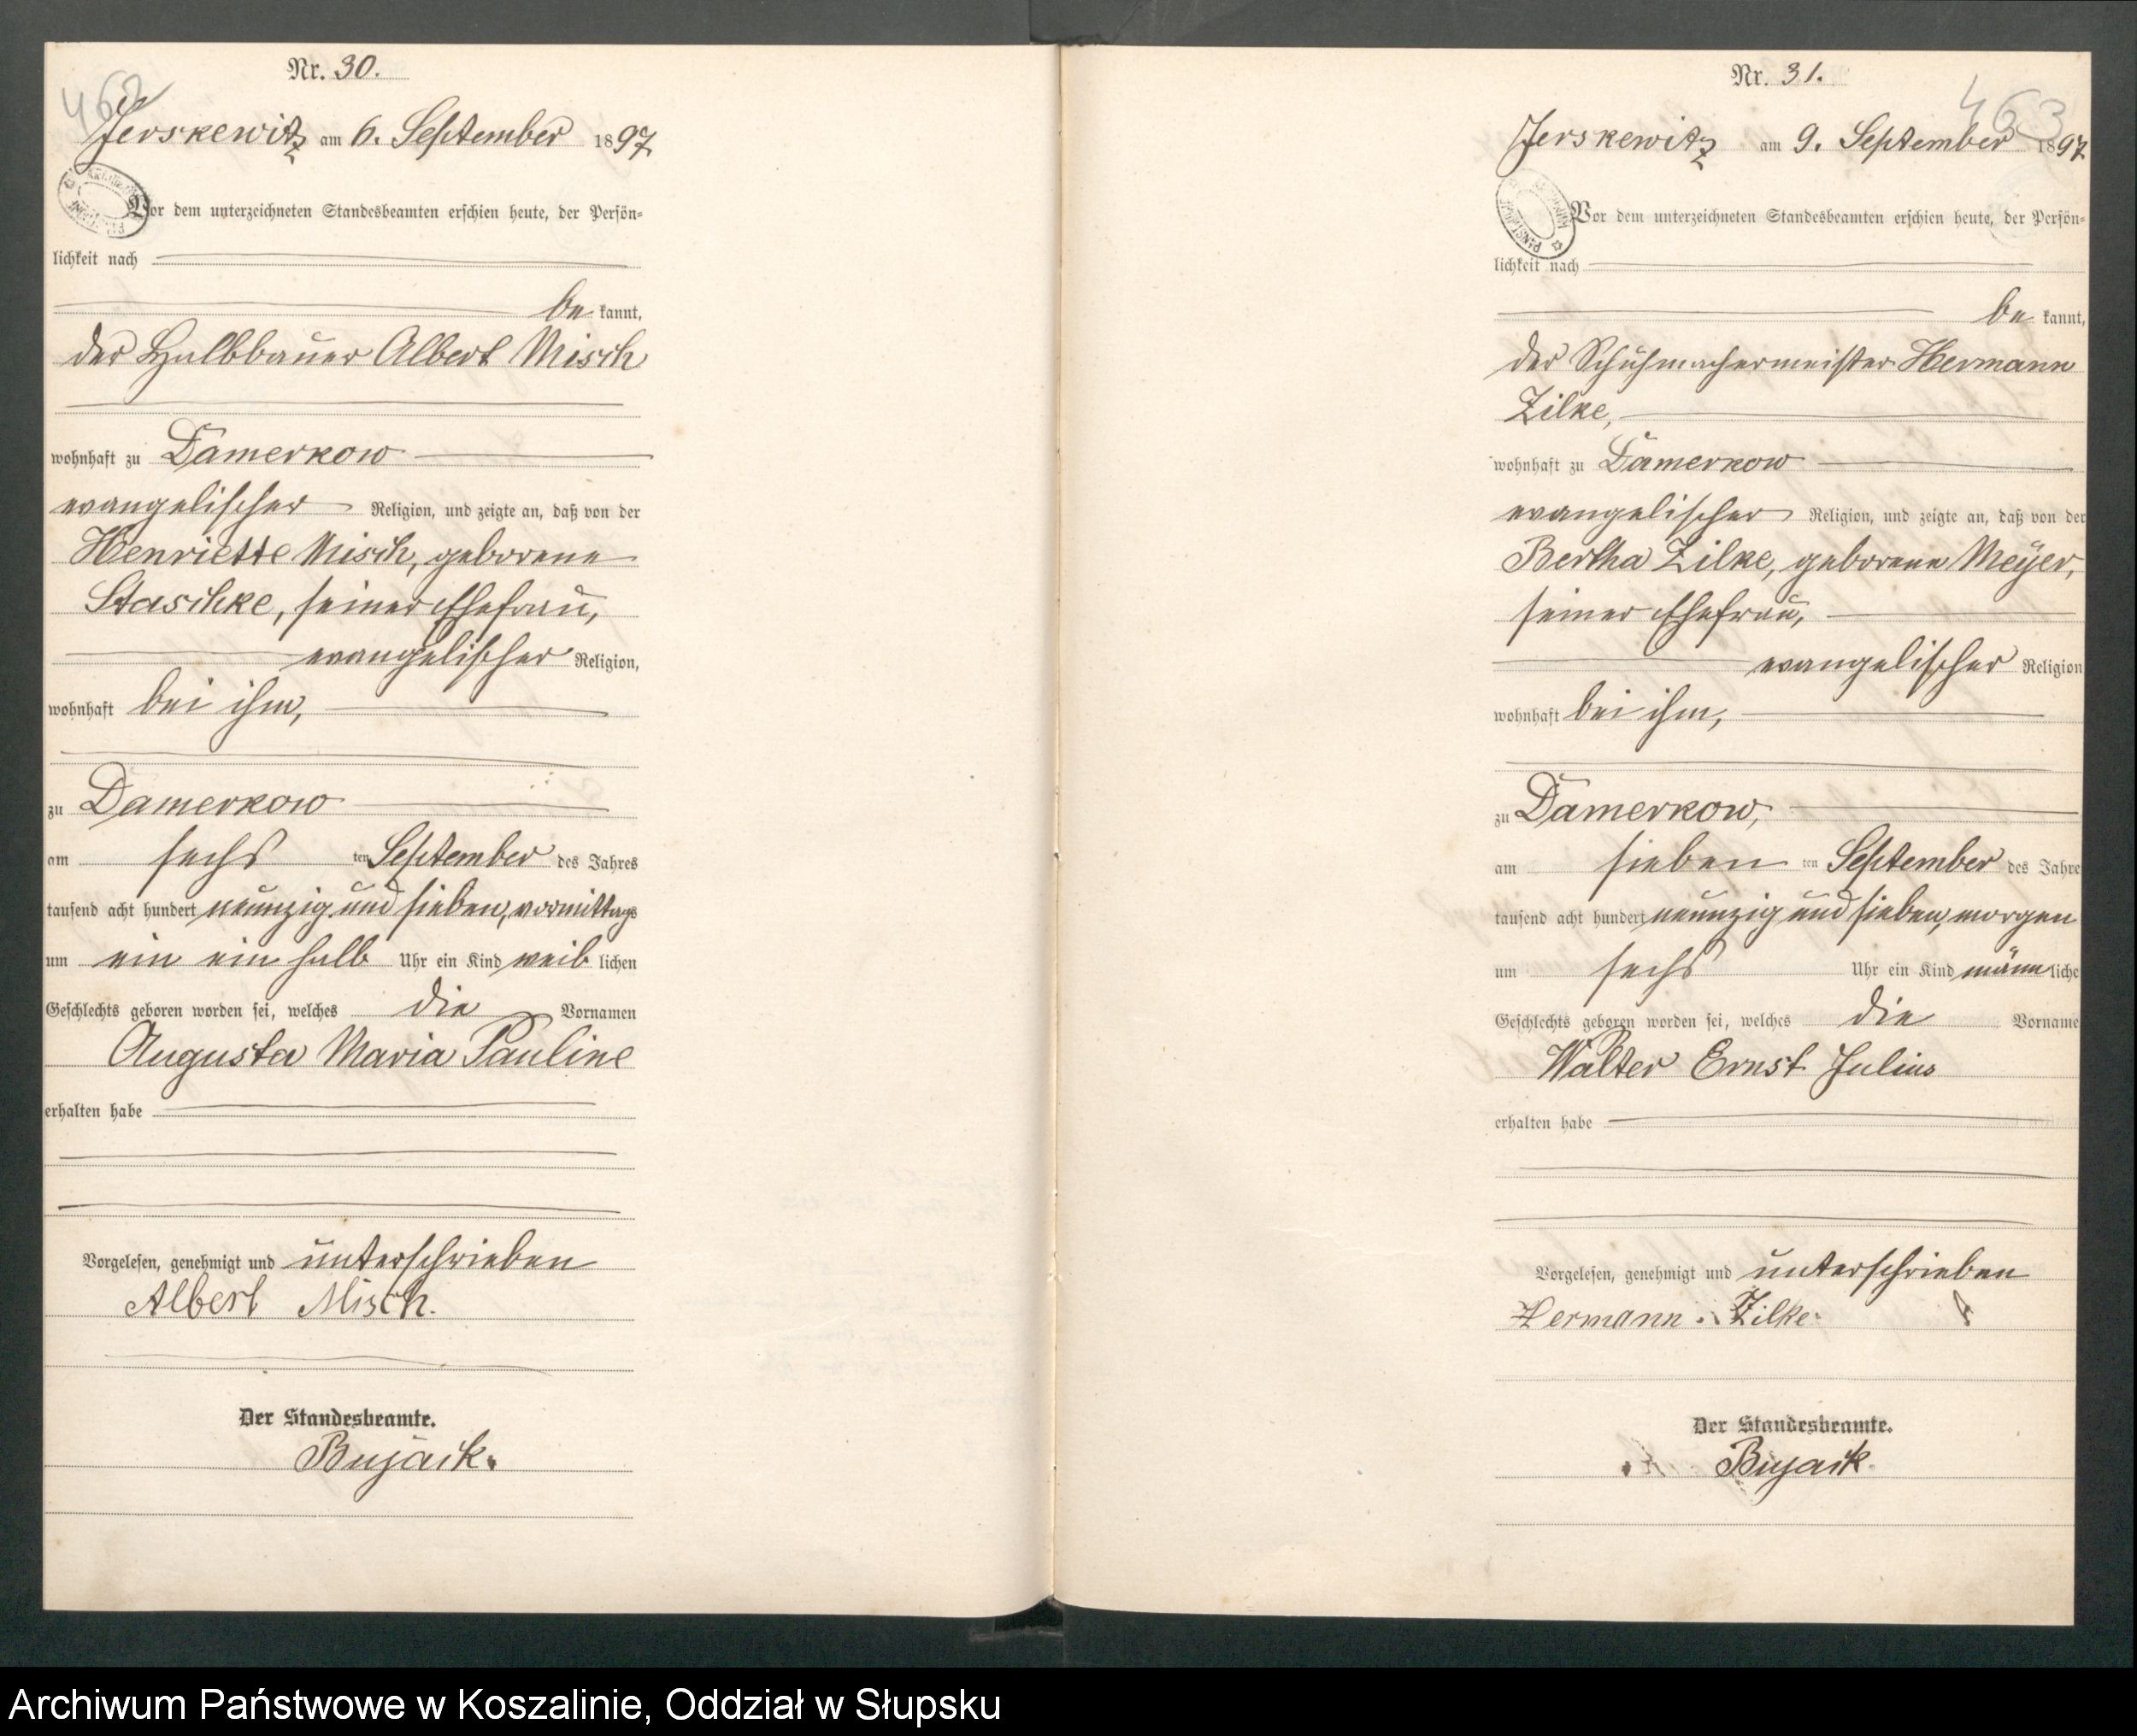 Nr. 30.
462
Jerskewitz am 6. September 1897
Vor dem unterzeichneten Standesbeamten erschien heute, der Persön=
lichkeit nach
be kannt,
der Halbbauer Albert Misch
wohnhaft zu Damerkow
evangelischer Religion, und zeigte an, daß von der
Henriette Misch, geborene
Staschke, seiner Ehefrau,
evangelischer Religion,
wohnhaft bei ihm,
zu Damerkow
am sechs ten September des Jahres
tausend acht hundert neunzig und sieben, vormittags
um ein ein halb Uhr ein Kind weib lichen
Geschlechts geboren worden sei, welches die Vornamen
Augusta Maria Pauline
erhalten habe
Vorgelesen, genehmigt und unterschrieben
Albert Misch.
Der Standesbeamte.
Bujack.
Nr. 31.
463
Jerskewitz am 9. September 1897
Vor dem unterzeichneten Standesbeamten erschien heute, der Persön=
lichkeit nach
be kannt,
der Schuhmachermeister Hermann
Zilke,
wohnhaft zu Damerkow
evangelischer Religion, und zeigte an, daß von der
Bertha Zilke, geborene Meÿer,
seiner Ehefrau,
evangelischer Religion
wohnhaft bei ihm,
zu Damerkow,
am sieben ten September des Jahre
tausend acht hundert neunzig und sieben, morgen
um sechs Uhr ein Kind männ liche
Geschlechts geboren worden sei, welches die Vorname
Walter Ernst Julius
erhalten habe
Vorgelesen, genehmigt und unterschrieben
Hermann Zilke
Der Standesbeamte.
Bujack
Archiwum Państwowe w Koszalinie, Oddział w Słupsku